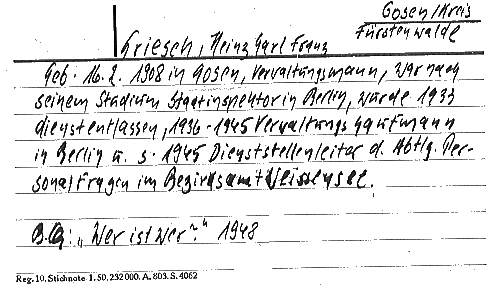 Gosen/Kreis
Fürstenwalde
Griesch, Heinz Carl Franz
Geb. 16. 2. 1908 in Gosen, Verwaltungsmann, war nach
seinem Studium Staatinspektor in Berlin, wurde 1933
dienstentlassen, 1936-1945 Verwaltungskaufmann
in Berlin u. s. 1945 Dienststellenleiter d. Abtlg. Per-
sonalfragen im Bezirksamt Weissensee.
B.Q.: „Wer ist Wer?" 1948
Reg. 10. Stichnote 1. 50. 232 000. A. 803. S. 4062